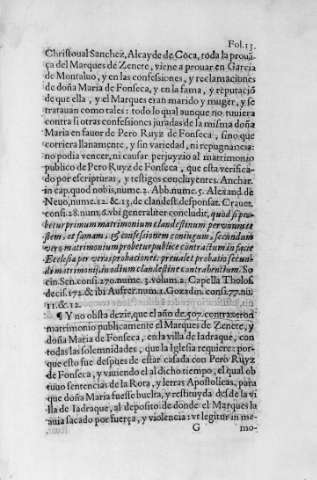 Fol.13.
Christoual Sanchez, Alcayde de Coca, toda la prouã
ça del Marques de Zenete, viene a prouar en Garcia
de Montaluo, y en las confessiones, y reclamaciones
de doña Maria de Fonseca, y en la fama, y reputaciõ
de que ella, y el Marques eran marido y muger, y se
tratauan como tales: todo lo qual aunque no tuuiera
contra si otras confessiones juradas de la misma doña
Maria en fauor de Pero Ruyz de Fonseca, sino que
corriera llanamente, y sin variedad, ni repugnancia:
no podia vencer, ni causar perjuyzio al matrimonio
publico de Pero Ruyz de Fonseca, que esta verifica-
do por escripturas, y testigos concluyentes. Anchar.
in cap. quod nobis, nume. 2. Abb. nume. 5. Alexand. de
Neuo, nume. 12. & 13. de clandest. desponsat. Crauet.
consi. 28. num. 6. vbi generaliter concludit, quod si pro-
betur primum matrimonium clandestinum per vnum te
stem, et famam, et confessionem coniugum, secundum
vero matrimonium probetur publice contractum in facie
Ecclesiæ per veras probationes: præualet probatio secun-
di matrimonij, in odium clandestine contrahentium. So
cin. Sen. consi. 270. nume. 5. volum. 2. Capella Tholos.
decis. 172. & ibi Aufrer. num. 1. Gozadin. consi. 77. nu.
11. & 12.
¶ Y no obsta dezir, que el año de .507. contraxeron
matrimonio publicamente el Marques de Zenete, y
doña Maria de Fonseca, en la villa de Iadraque, con
todas las solemnidades, que la Iglesia requiere: por-
que esto fue despues de estar casada con Pero Ruyz
de Fonseca, y viuiendo el al dicho tiempo, el qual ob
tuuo sentencias de la Rota, y letras Apostolicas, para
que doña Maria fuesse buelta, y restituyda desde la vi
lla de Iadraque, al deposito de donde el Marques la
auia sacado por fuerça, y violencia: vt legitur in me-
G mo-